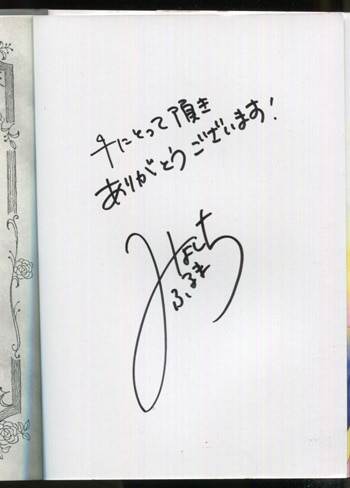 手にとって頂き
ありがとうございます!
ふるま